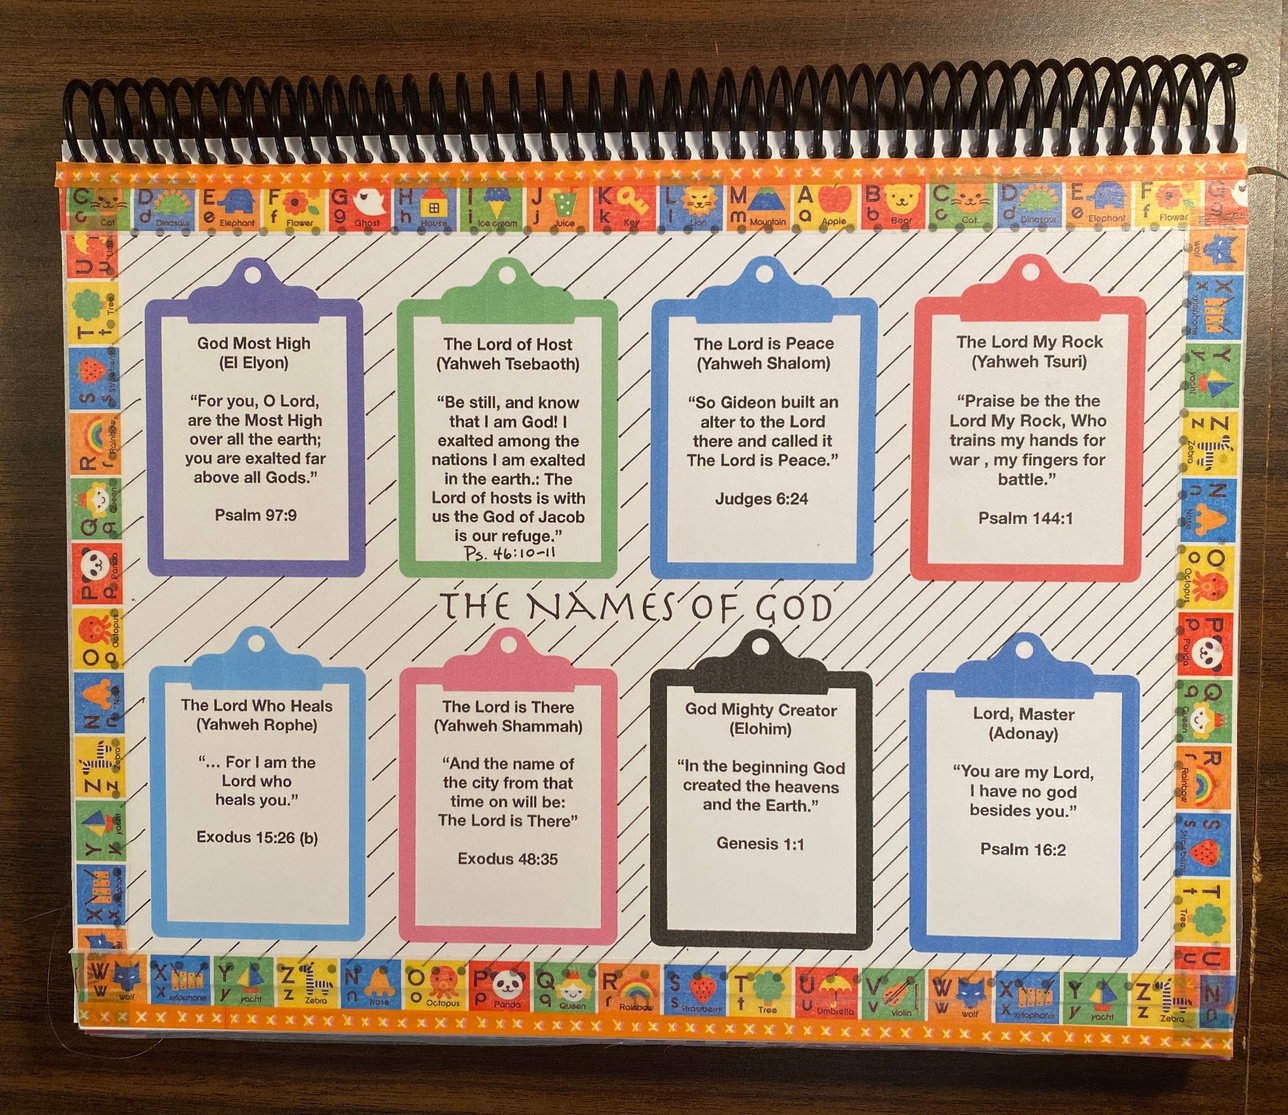 C c Cat D d Dinosaur E e Elephant F f Flower G g Ghost H h House I i Ice cream J j Juice K k Key L l Lion M m Mountain A a Apple B b Bear C c Cat D d Dinosaur E e Elephant F f Flower G g
God Most High
(El Elyon)
“For you, O Lord,
are the Most High
over all the earth;
you are exalted far
above all Gods.”
Psalm 97:9
The Lord of Host
(Yahweh Tsebaoth)
“Be still, and know
that I am God! I
exalted among the
nations I am exalted
in the earth.: The
Lord of hosts is with
us the God of Jacob
is our refuge.”
Ps. 46:10-11
The Lord is Peace
(Yahweh Shalom)
“So Gideon built an
alter to the Lord
there and called it
The Lord is Peace.”
Judges 6:24
The Lord My Rock
(Yahweh Tsuri)
“Praise be the the
Lord My Rock, Who
trains my hands for
war , my fingers for
battle.”
Psalm 144:1
THE NAMES OF GOD
The Lord Who Heals
(Yahweh Rophe)
“... For I am the
Lord who
heals you.”
Exodus 15:26 (b)
The Lord is There
(Yahweh Shammah)
“And the name of
the city from that
time on will be:
The Lord is There”
Exodus 48:35
God Mighty Creator
(Elohim)
“In the beginning God
created the heavens
and the Earth.”
Genesis 1:1
Lord, Master
(Adonay)
“You are my Lord,
I have no god
besides you.”
Psalm 16:2
U u
T t Tree
S s Strawberry
R r Rainbow
Q q Queen
P p Panda
O o Octopus
N n Nose
Z z Zebra
Y y yacht
X x xylophone
wolf
X x xylophone
Y y yacht
Z z Zebra
N n Nose
O o Octopus
P p Panda
Q q Queen
R r Rainbow
S s Strawberry
T t Tree
U u
W w wolf X x xylophone Y y yacht Z z Zebra N n Nose O o Octopus P p Panda Q q Queen R r Rainbow S s Strawberry T t Tree U u Umbrella V v violin W w wolf X x xylophone Y y yacht Z z Zebra N n